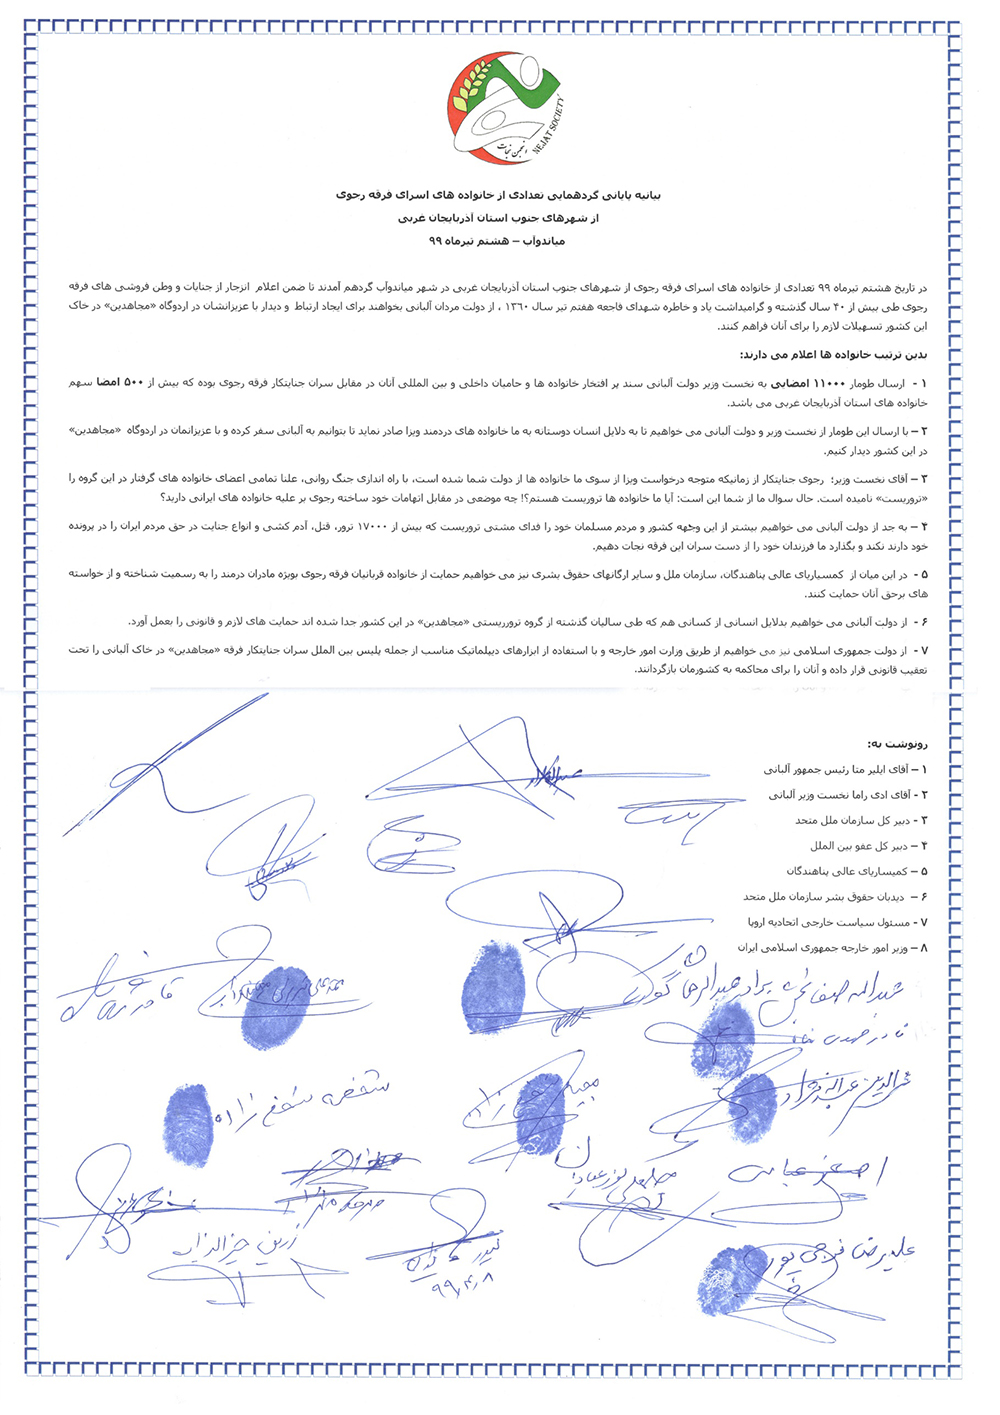 انجمن نجات
NEJAT SOCIETY
بیانیه پایانی گردهمایی تعدادی از خانواده های اسرای فرقه رجوی
از شهرهای جنوب استان آذربایجان غربی
میاندوآب – هشتم تیرماه ۹۹
در تاریخ هشتم تیرماه ۹۹ تعدادی از خانواده های اسرای فرقه رجوی از شهرهای جنوب استان آذربایجان غربی در شهر میاندوآب گردهم آمدند تا ضمن اعلام انزجار از جنایات و وطن فروشی های فرقه
رجوی طی بیش از ۴۰ سال گذشته و گرامیداشت یاد و خاطره شهدای فاجعه هفتم تیر سال ۱۳۶۰ ، از دولت مردان آلبانی بخواهند برای ایجاد ارتباط و دیدار با عزیزانشان در اردوگاه «مجاهدین» در خاک
این کشور تسهیلات لازم را برای آنان فراهم کنند.
بدین ترتیب خانواده ها اعلام می دارند:
۱ - ارسال طومار ۱۱۰۰۰ امضایی به نخست وزیر دولت آلبانی سند پر افتخار خانواده ها و حامیان داخلی و بین المللی آنان در مقابل سران جنایتکار فرقه رجوی بوده که بیش از ۵۰۰ امضا سهم
خانواده های استان آذربایجان غربی می باشد.
۲ – با ارسال این طومار از نخست وزیر و دولت آلبانی می خواهیم تا به دلایل انسان دوستانه به ما خانواده های دردمند ویزا صادر نماید تا بتوانیم به آلبانی سفر کرده و با عزیزانمان در اردوگاه «مجاهدین»
در این کشور دیدار کنیم.
۳ – آقای نخست وزیر؛ رجوی جنایتکار از زمانیکه متوجه درخواست ویزا از سوی ما خانواده ها از دولت شما شده است، با راه اندازی جنگ روانی، علنا تمامی اعضای خانواده های گرفتار در این گروه را
«تروریست» نامیده است. حال سوال ما از شما این است: آیا ما خانواده ها تروریست هستم؟! چه موضعی در مقابل اتهامات خود ساخته رجوی بر علیه خانواده های ایرانی دارید؟
۴ – به جد از دولت آلبانی می خواهیم بیشتر از این وجهه کشور و مردم مسلمان خود را فدای مشتی تروریست که بیش از ۱۷۰۰۰ ترور، قتل، آدم کشی و انواع جنایت در حق مردم ایران را در پرونده
خود دارند نکند و بگذارد ما فرزندان خود را از دست سران این فرقه نجات دهیم.
۵ - در این میان از کمسیاریای عالی پناهندگان، سازمان ملل و سایر ارگانهای حقوق بشری نیز می خواهیم حمایت از خانواده قربانیان فرقه رجوی بویژه مادران درمند را به رسمیت شناخته و از خواسته
های برحق آنان حمایت کنند.
۶ - از دولت آلبانی می خواهیم بدلایل انسانی از کسانی هم که طی سالیان گذشته از گروه ترورریستی «مجاهدین» در این کشور جدا شده اند حمایت های لازم و قانونی را بعمل آورد.
۷ - از دولت جمهوری اسلامی نیز می خواهیم از طریق وزارت امور خارجه و با استفاده از ابزارهای دیپلماتیک مناسب از جمله پلیس بین الملل سران جنایتکار فرقه «مجاهدین» در خاک آلبانی را تحت
تعقیب قانونی قرار داده و آنان را برای محاکمه به کشورمان بازگردانند.
رونوشت به:
۱ – آقای ایلیر متا رئیس جمهور آلبانی
۲ - آقای ادی راما نخست وزیر آلبانی
۳ - دبیر کل سازمان ملل متحد
۴ – دبیر کل عفو بین الملل
۵ – کمیساریای عالی پناهندگان
۶ – دیدبان حقوق بشر سازمان ملل متحد
۷ - مسئول سیاست خارجی اتحادیه اروپا
۸ – وزیر امور خارجه جمهوری اسلامی ایران
برادر عبدالرحمان
شفیع زاده
اصغر عباسی
علیرضا فرجی پور
۹۹،۴،۸